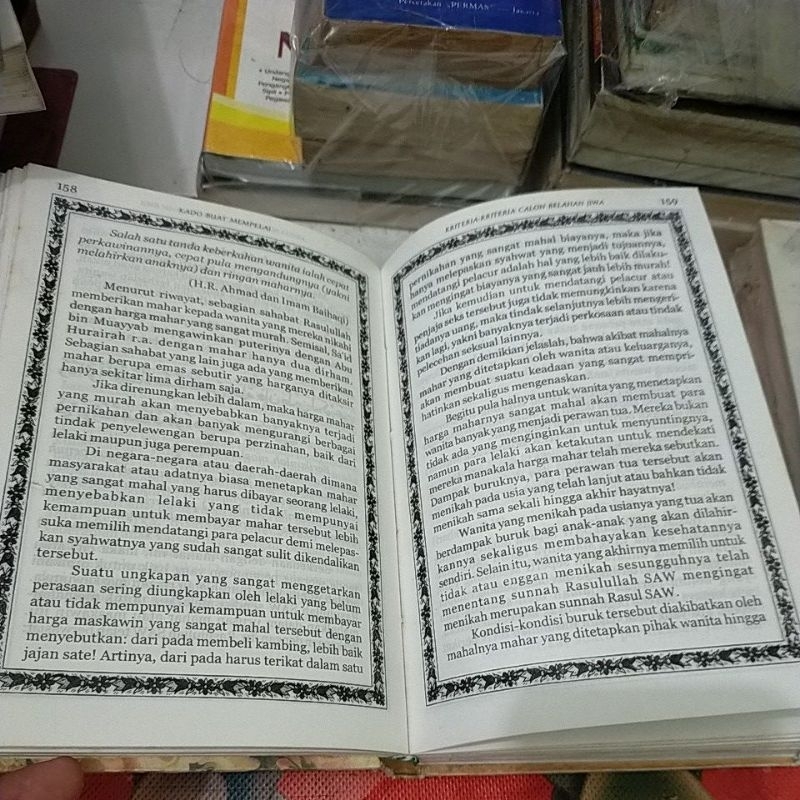 Percetakan „PERMAS"
Jakarta
• Undang
158
KADO BUAT MEMPELAI
Salah satu tanda keberkahan wanita ialah cepat
perkawinannya, cepat pula mengandungnya (yakni
melahirkan anaknya) dan ringan maharnya.
(H.R. Ahmad dan Imam Baihaqi)
Menurut riwayat, sebagian sahabat Rasulullah
memberikan mahar kepada wanita yang mereka nikahi
dengan harga mahar yang sangat murah. Semisal, Sa'id
bin Muayyab mengawinkan puterinya dengan Abu
Hurairah r.a. dengan mahar hanya dua dirham.
Sebagian sahabat yang lain juga ada yang memberikan
mahar berupa emas sebutir yang harganya ditaksir
hanya sekitar lima dirham saja.
Jika direnungkan lebih dalam, maka harga mahar
yang murah akan menyebabkan banyaknya terjadi
pernikahan dan akan banyak mengurangi berbagai
tindak penyelewengan berupa perzinahan, baik dari
lelaki maupun juga perempuan.
Di negara-negara atau daerah-daerah dimana
masyarakat atau adatnya biasa menetapkan mahar
yang sangat mahal yang harus dibayar seorang lelaki,
menyebabkan lelaki yang tidak mempunyai
kemampuan untuk membayar mahar tersebut lebih
suka memilih mendatangi para pelacur demi melepas-
kan syahwatnya yang sudah sangat sulit dikendalikan
tersebut.
Suatu ungkapan yang sangat menggetarkan
perasaan sering diungkapkan oleh lelaki yang belum
atau tidak mempunyai kemampuan untuk membayar
harga maskawin yang sangat mahal tersebut dengan
menyebutkan: dari pada membeli kambing, lebih baik
jajan sate! Artinya, dari pada harus terikat dalam satu
KRITERIA-KRITERIA CALON BELAHAN JIWA
159
pernikahan yang sangat mahal biayanya, maka jika
hanya melepaskan syahwat yang menjadi tujuannya,
mendatangi pelacur adalah hal yang lebih baik dilaku-
kan mengingat biayanya yang sangat jauh lebih murah!
Jika kemudian untuk mendatangi pelacur atau
penjaja seks tersebut juga tidak memungkinkan karena
tiadanya uang, maka tindak selanjutnya lebih mengeri-
kan lagi, yakni banyaknya terjadi perkosaan atau tindak
pelecehan seksual lainnya.
Dengan demikian jelaslah, bahwa akibat mahalnya
mahar yang ditetapkan oleh wanita atau keluarganya,
akan membuat suatu keadaan yang sangat mempri-
hatinkan sekaligus mengenaskan.
Begitu pula halnya untuk wanita yang menetapkan
harga maharnya sangat mahal akan membuat para
wanita banyak yang menjadi perawan tua. Mereka bukan
tidak ada yang menginginkan untuk menyuntingnya,
namun para lelaki akan ketakutan untuk mendekati
mereka manakala harga mahar telah mereka sebutkan.
Dampak buruknya, para perawan tua tersebut akan
menikah pada usia yang telah lanjut atau bahkan tidak
menikah sama sekali hingga akhir hayatnya!
Wanita yang menikah pada usianya yang tua akan
berdampak buruk bagi anak-anak yang akan dilahir-
kannya sekaligus membahayakan kesehatannya
sendiri. Selain itu, wanita yang akhirnya memilih untuk
tidak atau enggan menikah sesungguhnya telah
menentang sunnah Rasulullah SAW mengingat
menikah merupakan sunnah Rasul SAW.
Kondisi-kondisi buruk tersebut diakibatkan oleh
mahalnya mahar yang ditetapkan pihak wanita hingga